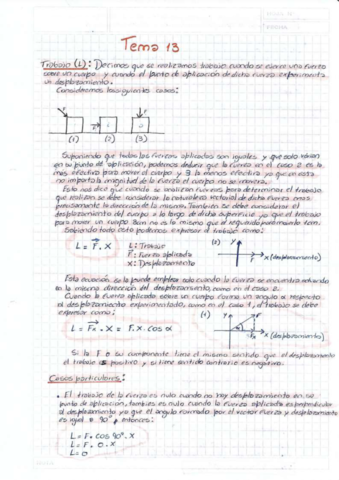 Tema 13
Trabajo (L): Decimos que se realiza trabajo cuando se ejerce una fuerza
sobre un cuerpo y cuando el punto de aplicación de dicha fuerza experimenta
un desplazamiento.
Consideremos los siguientes casos:
(1) (2) (3)
Suponiendo que todas las fuerzas aplicadas son iguales y que solo varían
en su punto de aplicación, podemos deducir que la fuerza en el caso 2 es la
más efectiva para mover el cuerpo y 3 la menos efectiva ya que en esta
no importa la magnitud de la fuerza el cuerpo no se moverá.
Esto nos dice que cuando se analizan fuerzas para determinar el trabajo
que realizan se debe considerar la naturaleza vectorial de dicha fuerza
precisamente la dirección de la misma. También se debe considerar el
desplazamiento del cuerpo a lo largo de dicha superficie ya que el trabajo
para mover un cuerpo no es lo mismo que el
Sabiendo todo esto podemos expresar el trabajo como:
L = F. X
L: Trabajo
F: Fuerza aplicada
X: Desplazamiento
(2) y
x (desplazamiento)
Esta ecuación se la puede emplear solo cuando la fuerza se encuentra actuando
en la misma dirección del desplazamiento, como en el caso 2.
Cuando la fuerza aplicada sobre un cuerpo forma un ángulo α respecto
al desplazamiento experimentado, como en el caso 1, el trabajo se debe
expresar como:
L = Fx . X = F. X. cos α
(1) y
F
α
Fx
x (desplazamiento)
Si la F o su componente tiene el mismo sentido que el desplazamiento
el trabajo es positivo y si tiene sentido contrario es negativo.
Casos particulares:
• El trabajo de la fuerza es nulo cuando no hay desplazamiento en su
punto de aplicación, también es nulo cuando la fuerza aplicada es perpendicular
al desplazamiento ya que el ángulo formado por el vector fuerza y desplazamiento
es igual a 90°, entonces:
L = F. cos 90°. X
L = F. 0. X
L = 0